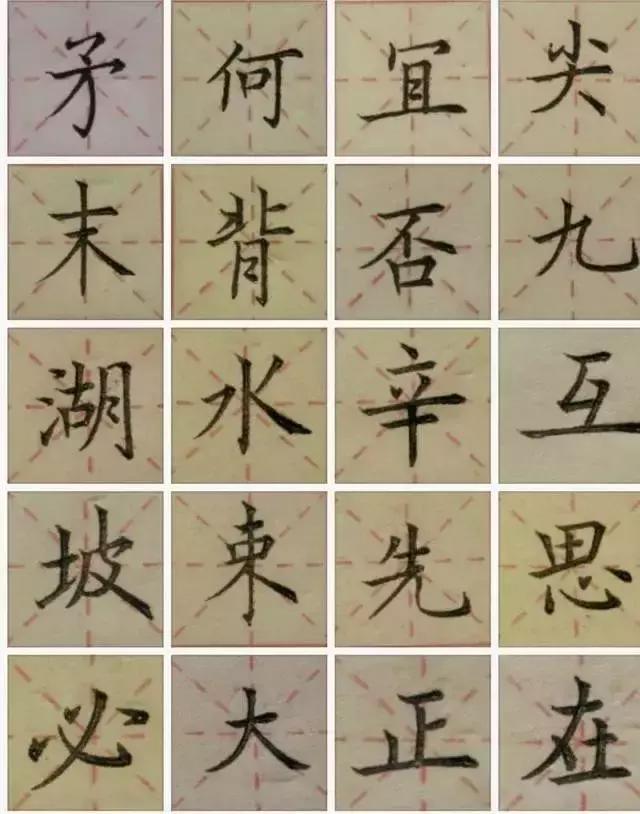 矛何宜尖
末背否九
湖水辛互
坡束先思
必大正在